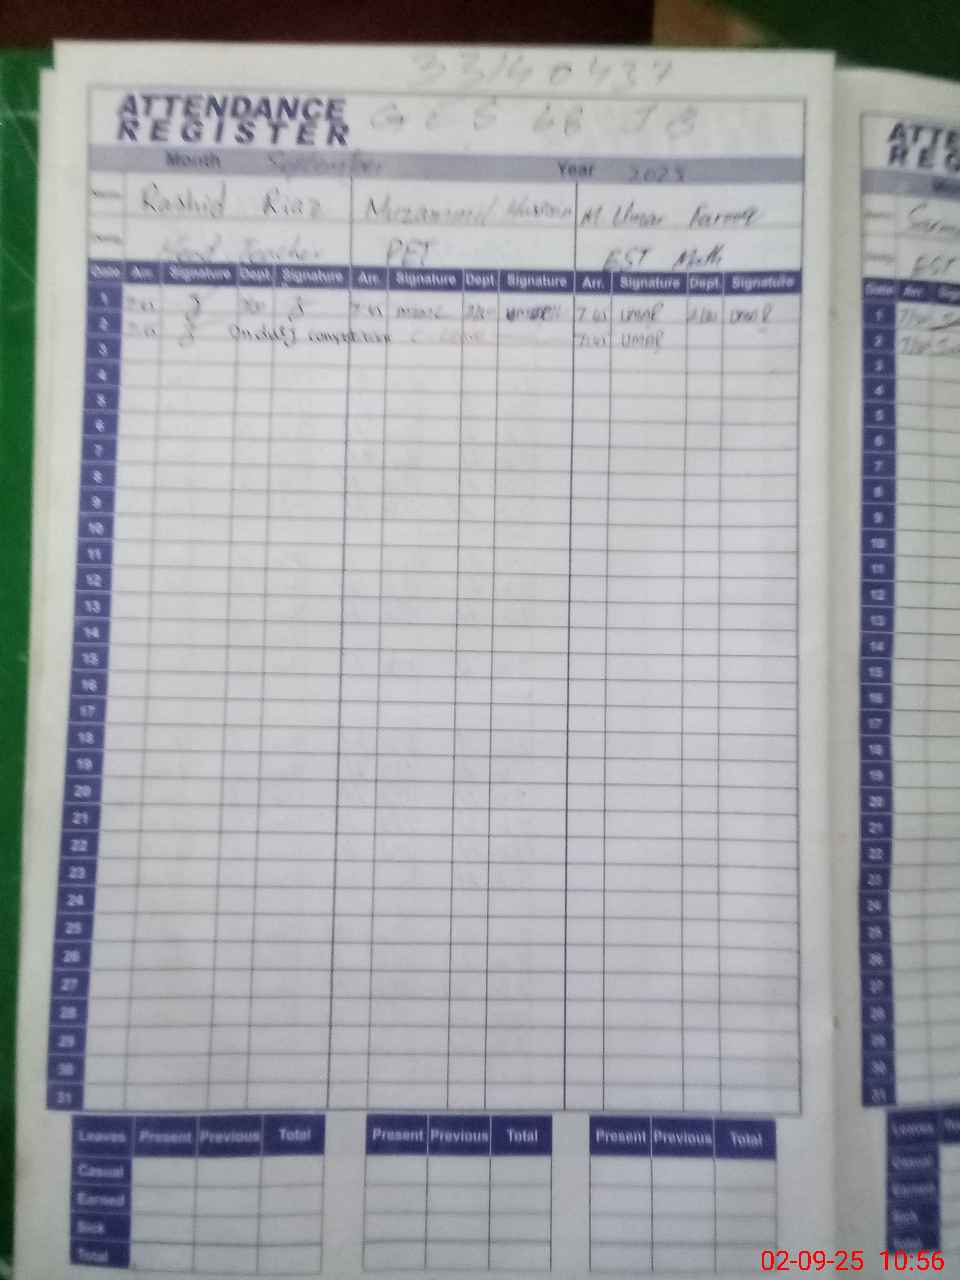 33140437
ATTENDANCE
REGISTER
G E S 68 J B
Month September Year 2025
Rashid Riaz Muzammil M Umar Farooq
Head Teacher PET EST Math
Date Arr. Signature Dept Signature Arr. Signature Dept Signature Arr. Signature Dept. Signature
1 7 45 UMAR UMAR
2 On duty competition C 7:45 UMAR
3
4
5
6
7
8
9
10
11
12
13
14
15
16
17
18
19
20
21
22
23
24
25
26
27
28
29
30
31
Leaves Present Previous Total Present Previous Total Present Previous Total
Casual
Earned
Sick
Total
ATTE
REG
EST
Date Arr
1
2
3
4
5
6
7
8
9
10
11
12
13
14
15
16
17
18
19
20
21
22
23
24
25
26
27
28
29
30
31
Leaves
Casual
Earned
Sick
Total
02-09-25 10:56